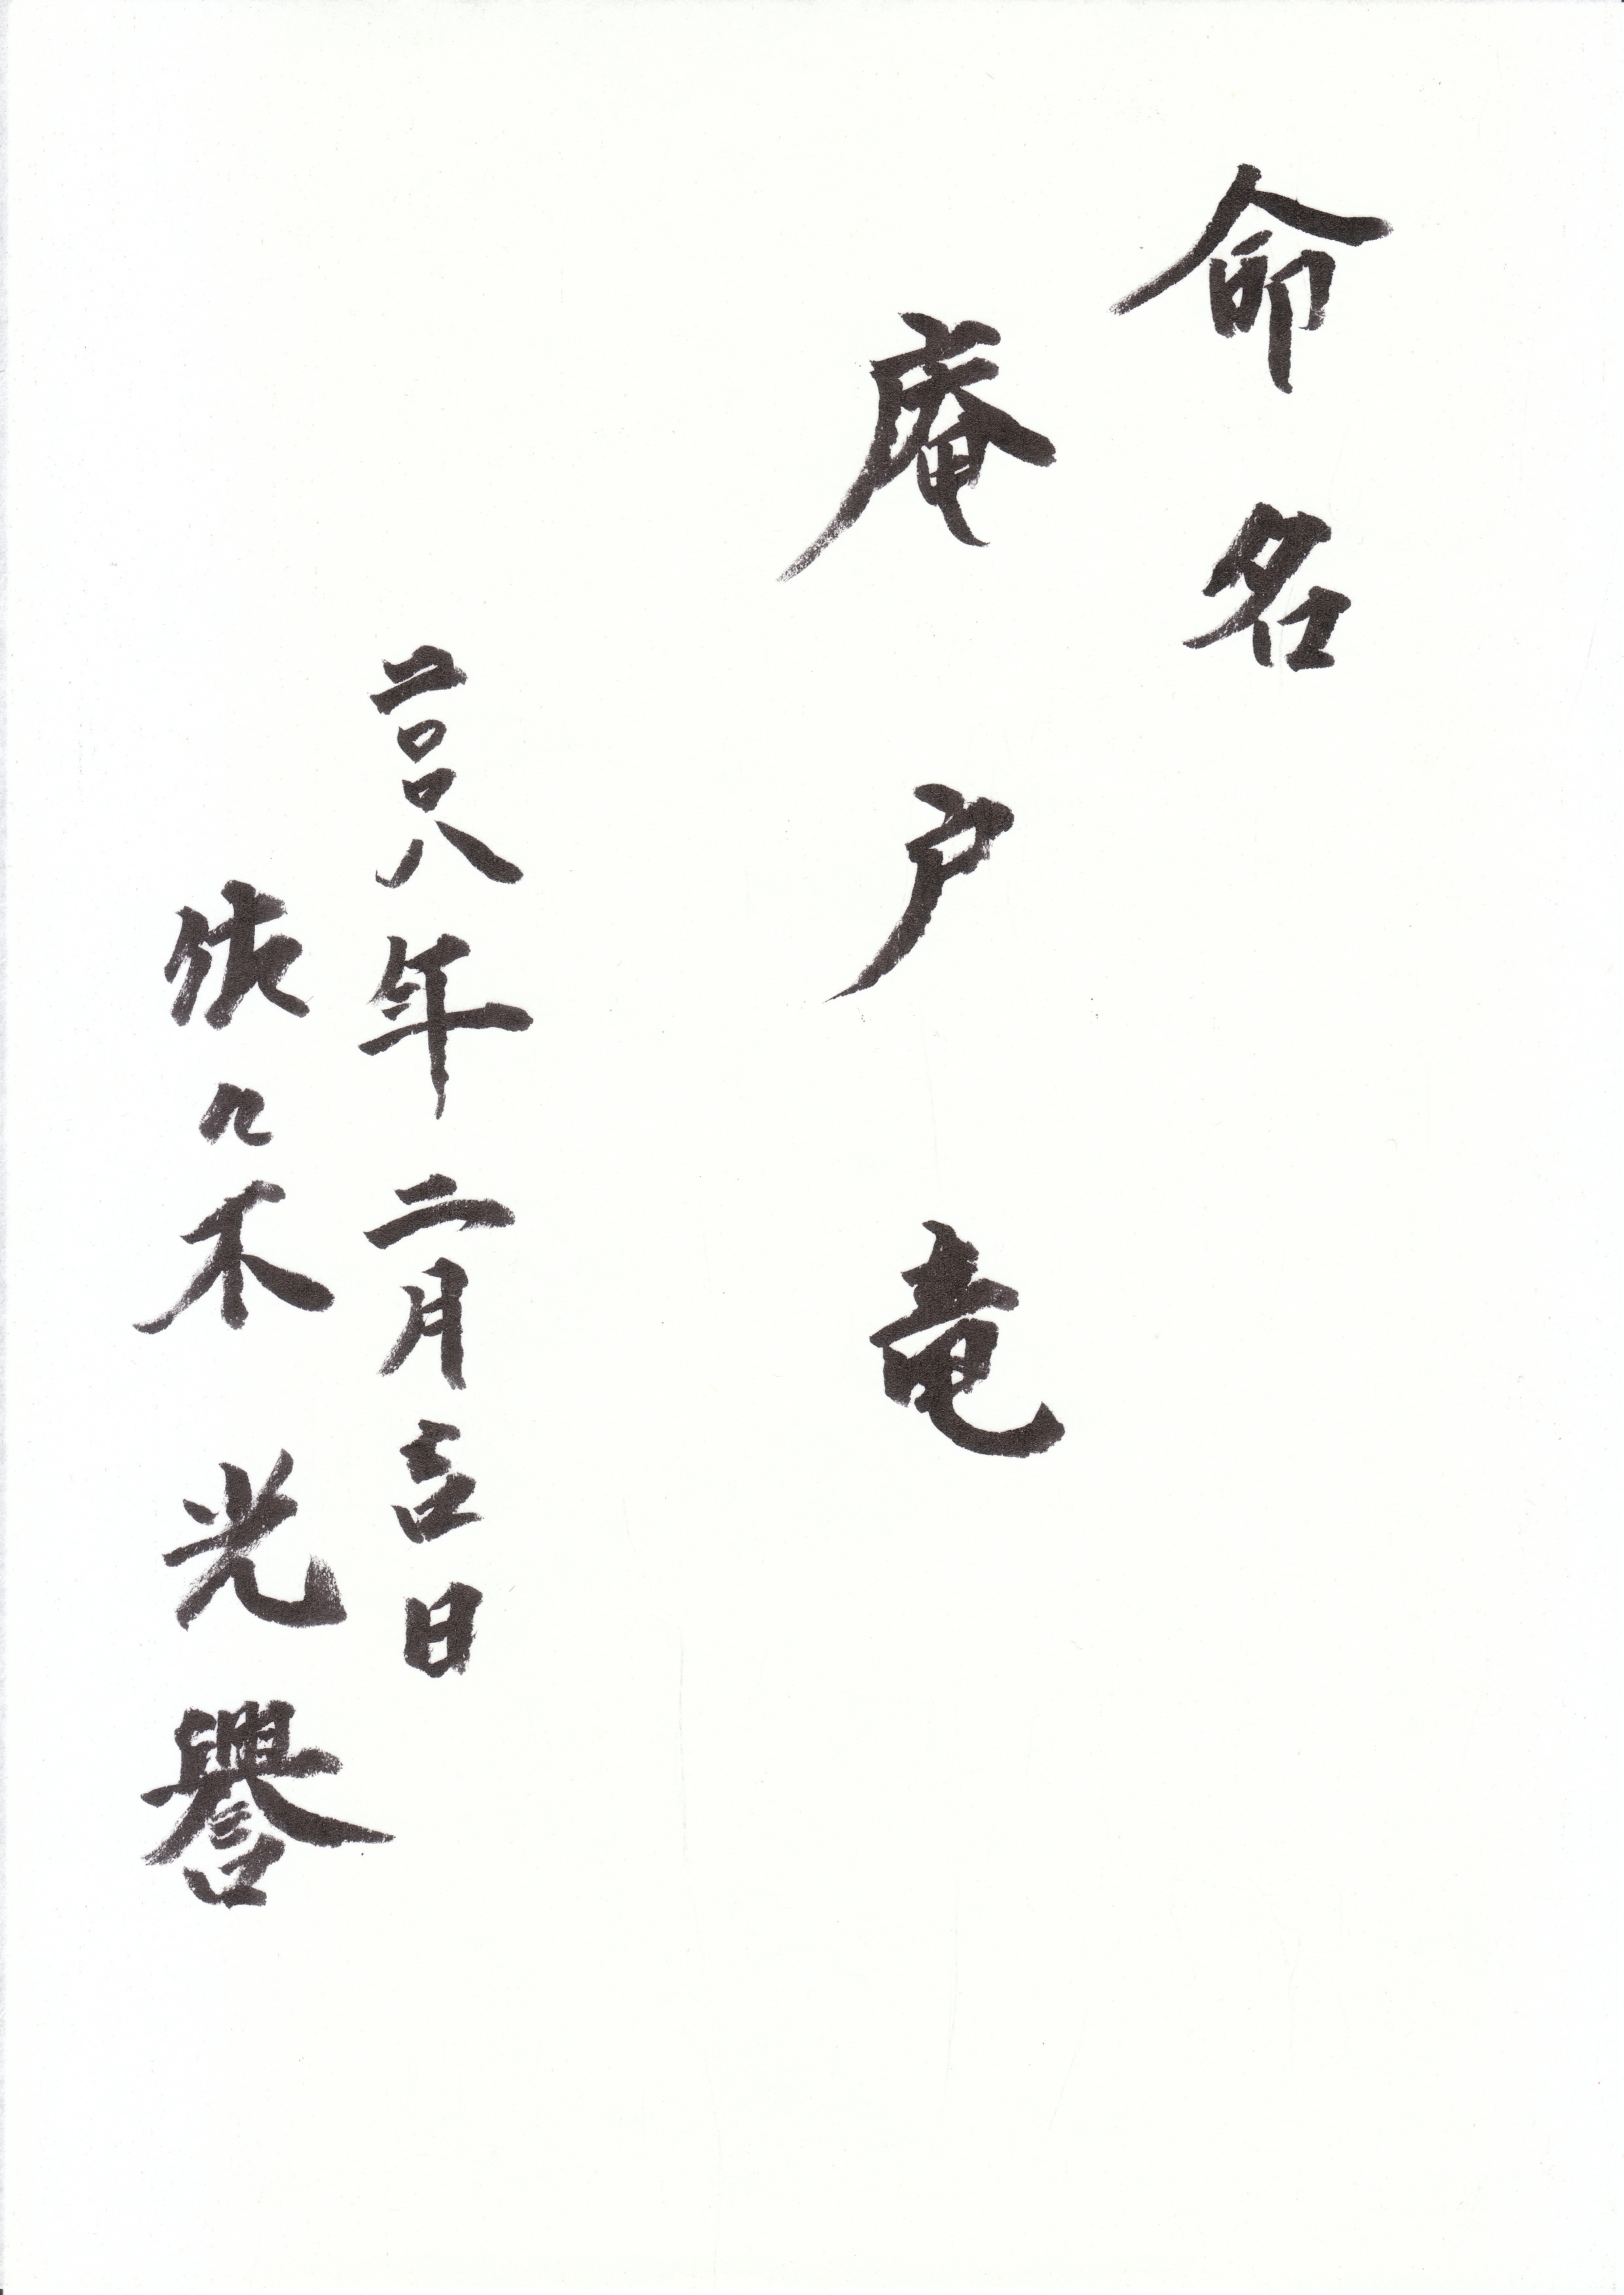 命名
庵戸竜
二〇〇八年二月吉日
佐々木光譽